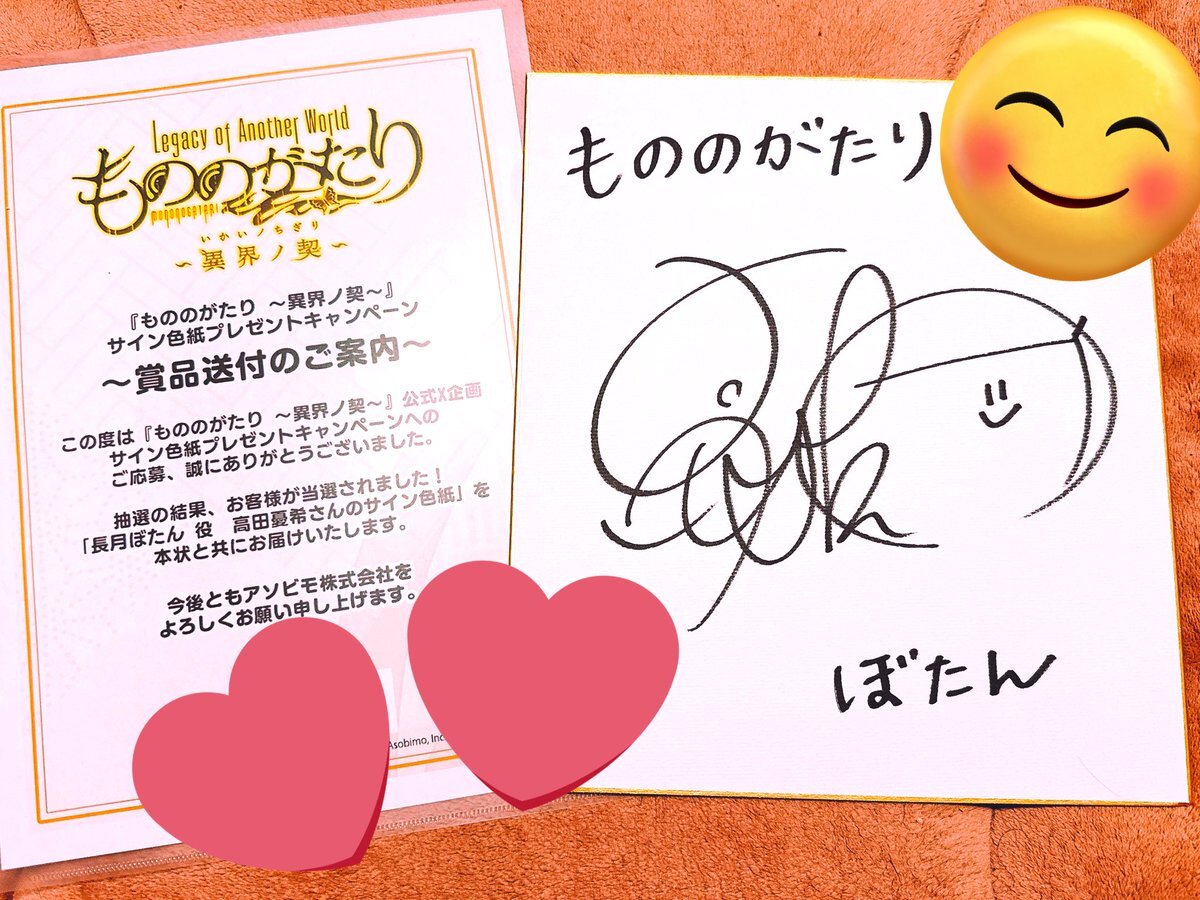 Legacy of Another World
もののがたり
MONONOGATARI
いかいノちぎり
～異界ノ契～
『もののがたり ～異界ノ契～』
サイン色紙プレゼントキャンペーン
～賞品送付のご案内～
この度は『もののがたり ～異界ノ契～』公式X企画
サイン色紙プレゼントキャンペーンへの
ご応募、誠にありがとうございました。
抽選の結果、お客様が当選されました！
「長月ぼたん 役 高田憂希さんのサイン色紙」を
本状と共にお届けいたします。
今後ともアソビモ株式会社を
よろしくお願い申し上げます。
Asobimo, Inc
もののがたり
ぼたん